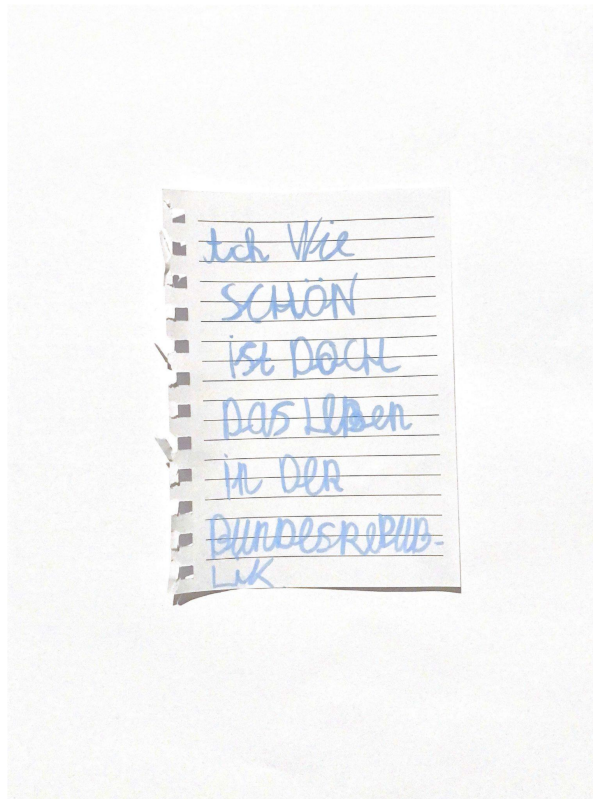 Ach Wie
SCHÖN
ist DOCH
DAS LEBEN
in DeR
BUNDesRePUB-
LiK